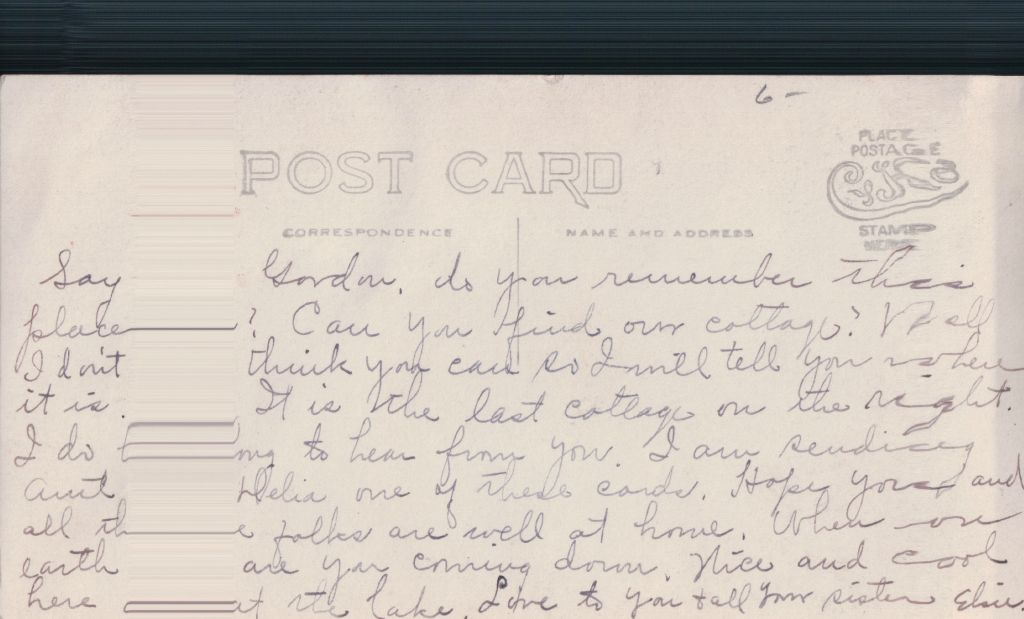 6 -
POST CARD
PLACE
POSTAGE
STAMP
HERE
CORRESPONDENCE
NAME AND ADDRESS
Say Gordon, do you remember this
place? Can you find our cottage? Well
I don't think you can so I will tell you where
it is. It is the last cottage on the right.
I do long to hear from you. I am sending
aunt Delia one of these cards. Hope you and
all the folks are well at home. When on
earth are you coming down. Nice and cool
here at the lake. Love to you & all your sister Elsie.